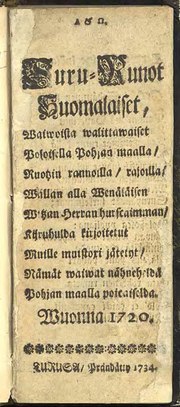 A & O.
Suru-Runot
Suomalaiset,
Waiwoista walittawaiset
Polotulla Pohjan maalla/
Ruotzin rannoilla/ rajoilla/
Wallan alla Wenäläisen
Wihan Herran hurjeaimman/
Kijruhulda kirjoitetut
Muille muistoxi jätetyt/
Nämät waiwat nähneheldä
Pohjan maalla poicaiselda.
Wuonna 1720.
TURUSA/ Prändätty 1734.